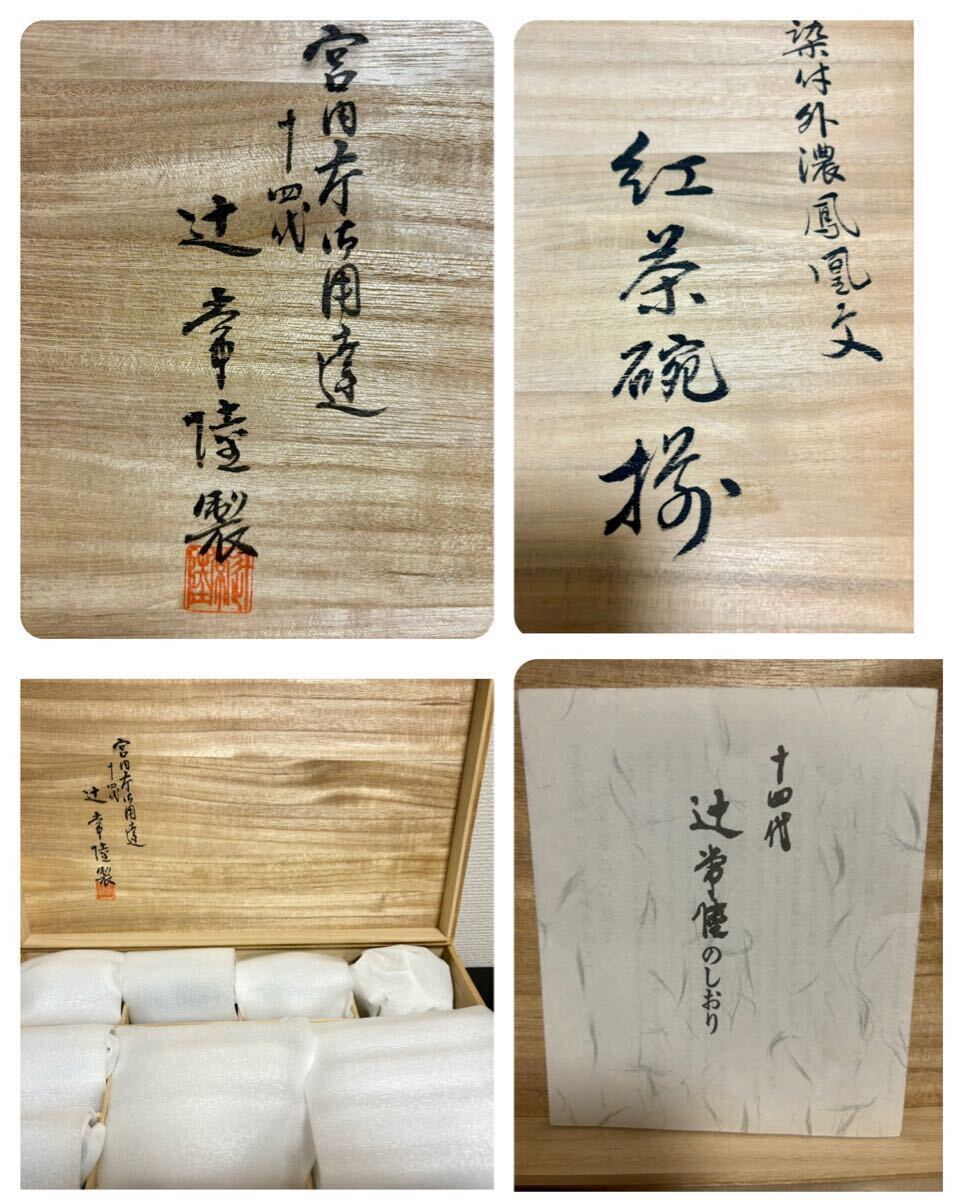 宮内庁御用達
十四代
辻常陸製
染付外濃鳳凰文
紅茶碗揃
宮内庁御用達
十四代
辻常陸製
十四代
辻常陸のしおり